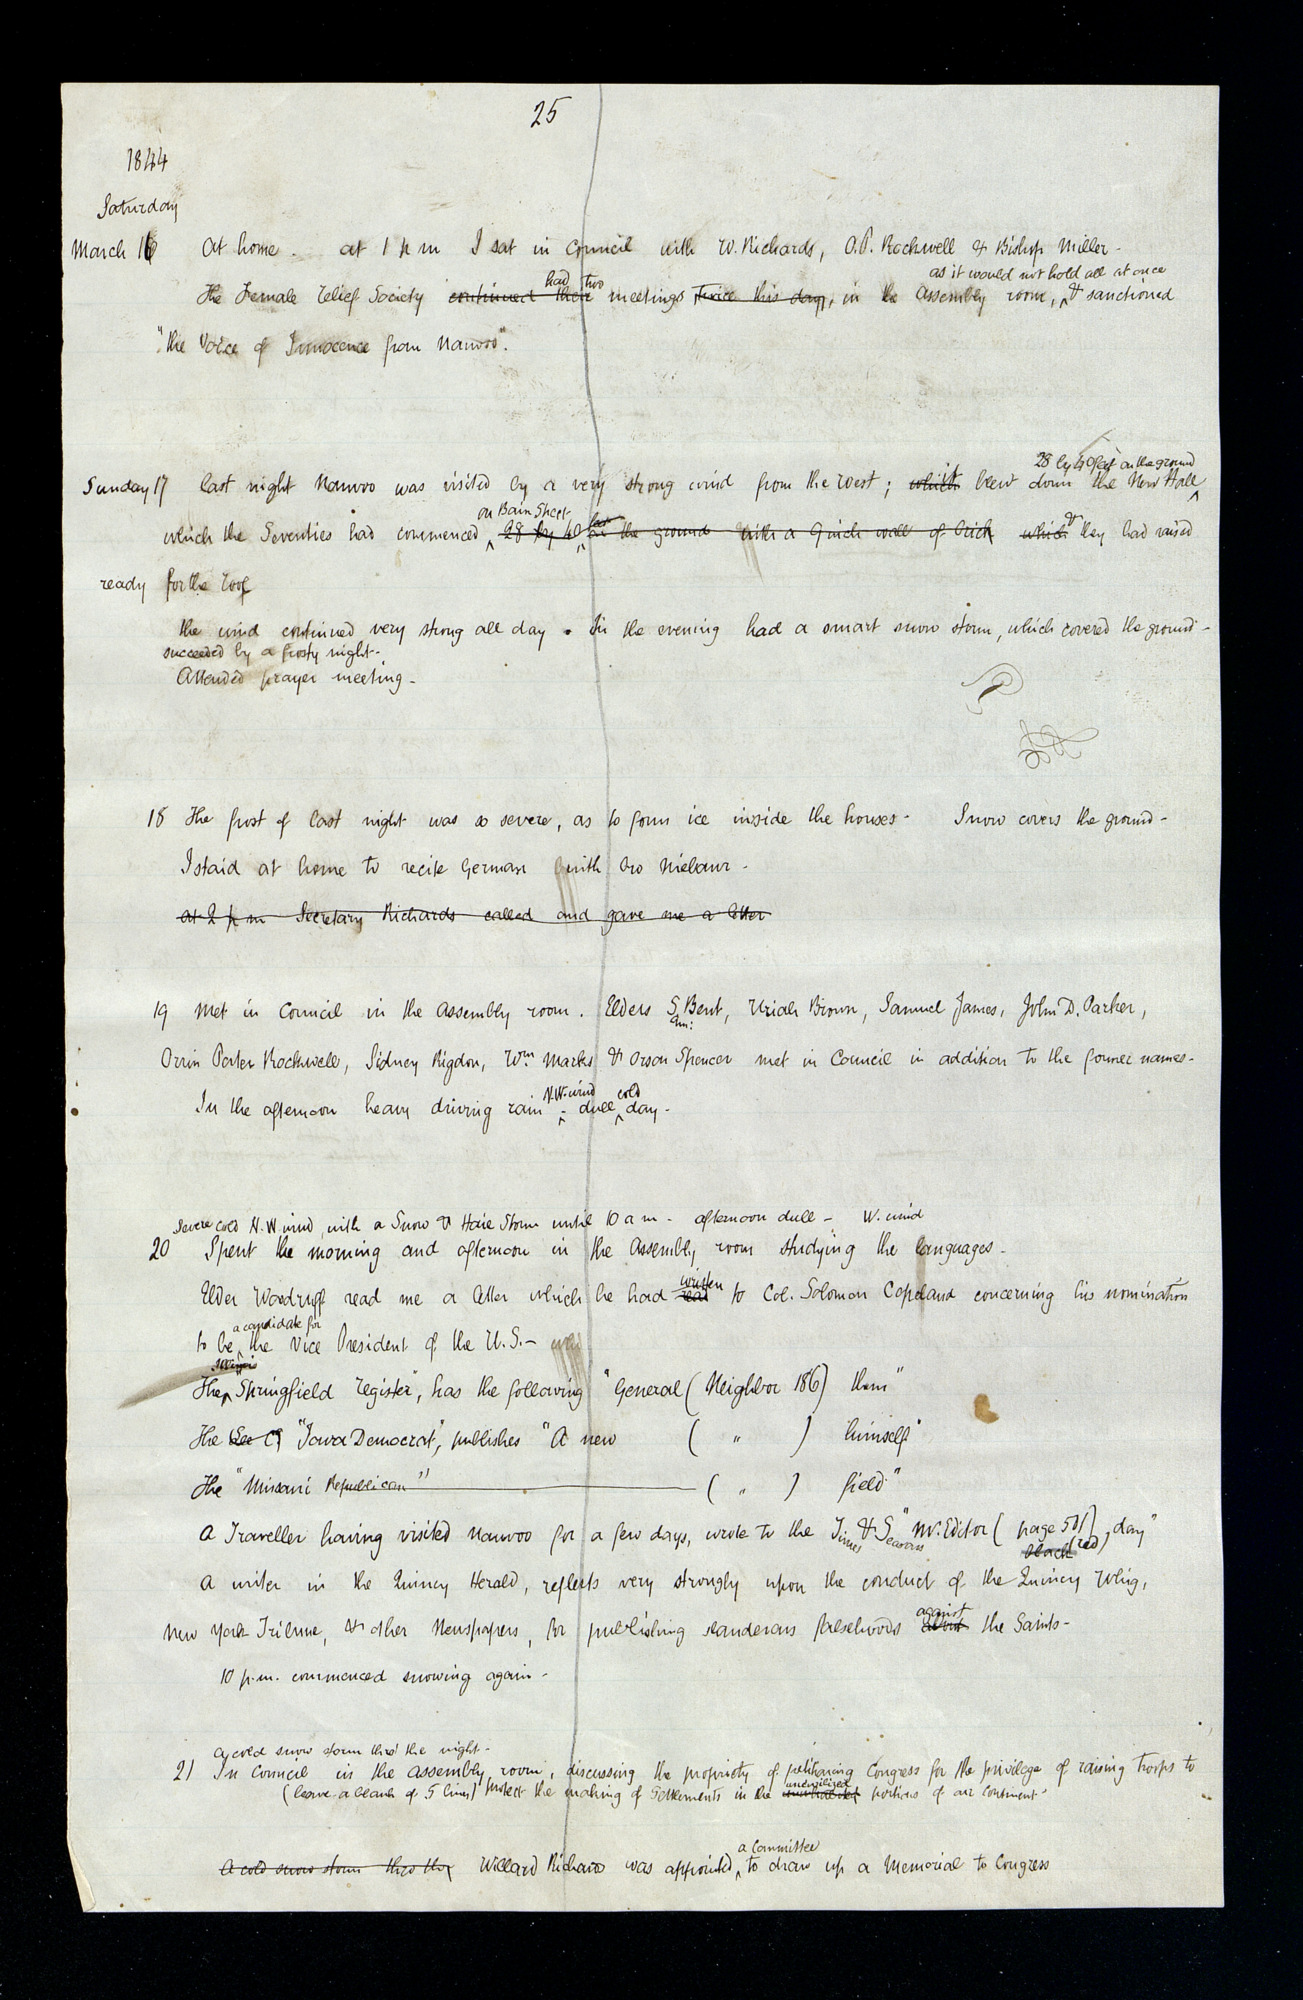 25
1844
Saturday
March 16 At home. at 1 p m I sat in Council with W. Richards, O.P. Rockwell & Bishop Miller-
had two as it would not hold all at once
The Female Relief Society continued their meetings twice this day, in the Assembly room, & sanctioned
"the Voice of Innocence from Nauvoo".
28 by 40 feet on the ground
Sunday 17 last night Nauvoo was visited by a very strong wind from the West; which it blew down the New Hall
on Bain Street feet &
which the Seventies had commenced 28 by 40 on the ground with a 9 inch wall of brick which they had raised
ready for the roof
the wind continued very strong all day. In the evening had a smart snow storm, which covered the ground-
succeeded by a frosty night-
Attended prayer meeting-
18 The frost of last night was so severe, as to form ice inside the houses- Snow covers the ground-
I staid at home to recite German with bro Niebaur-
at 2 p m Secretary Richards called and gave me a letter
19 Met in Council in the Assembly room. Elders S. Bent, Uriah Brown, Samuel James, John D. Parker,
am:
Orrin Porter Rockwell, Sidney Rigdon, Wm. Marks & Orson Spencer met in Council in addition to the former names-
N.W. wind cold
In the afternoon heavy driving rain - dull day-
Severe cold N.W. wind, with a Snow & Hail Storm until 10 a m- afternoon dull- W. wind
20 Spent the morning and afternoon in the Assembly room studying the languages-
written
Elder Woodruff read me a letter which he had read to Col. Solomon Copeland concerning his nomination
a candidate for
to be the Vice President of the U.S.-
Illinois
The "Springfield Register", has the following "General (Neighbor 186) them"
The "Iowa Democrat", publishes "A new ( " ) himself"
The "Missouri Republican" ( " ) field"
A Traveller having visited Nauvoo for a few days, wrote to the Times & Seasons "Mr. Editor (page 501) day"
black (red)
A writer in the Quincy Herald, reflects very strongly upon the conduct of the Quincy Whig,
against
New York Tribune, & other Newspapers, for publishing slanderous falsehoods about the Saints-
10 p.m. commenced snowing again-
A cold snow storm thro' the night-
21 In Council in the assembly room, discussing the propriety of petitioning Congress for the privilege of raising troops to
uncivilized
(leave a blank of 5 lines) protect the making of Settlements in the portions of our Continent-
a Committee
A cold snow storm thro the Willard Richards was appointed to draw up a Memorial to Congress